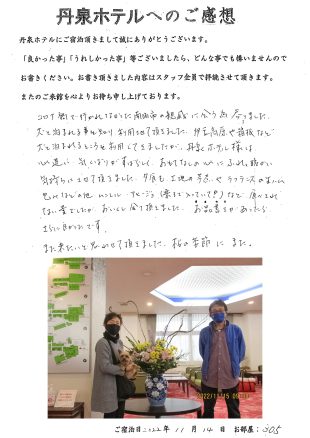 丹泉ホテルへのご感想
丹泉ホテルにご宿泊頂きまして誠にありがとうございます。
「良かった事」「うれしかった事」等ございましたら、どんな事でも構いませんので
お書きください。お書き頂きました内容はスタッフ全員で拝読させて頂きます。
またのご来館を心よりお待ち申し上げております。
コロナ禍で行けなかった 南陽市の親戚に会う為 参りました。
犬と泊まれる事を知り利用させて頂きました。伊豆高原や箱根など
犬と泊まれるところを利用してきましたが、丹泉ホテル様は
心遣い 気くばりがすばらしく、おもてなしの心にふれ 暖かい
気持ちにさせて頂きました。夕食も 土地の
など
ない量でしたが おいしく 全て頂きました。お品書きがあったら
さらに良かったです。
また来たいと思わせて頂きました。桜の季節に また。
2022/11/15
ご宿泊日 2022年 11月 14日 お部屋：305